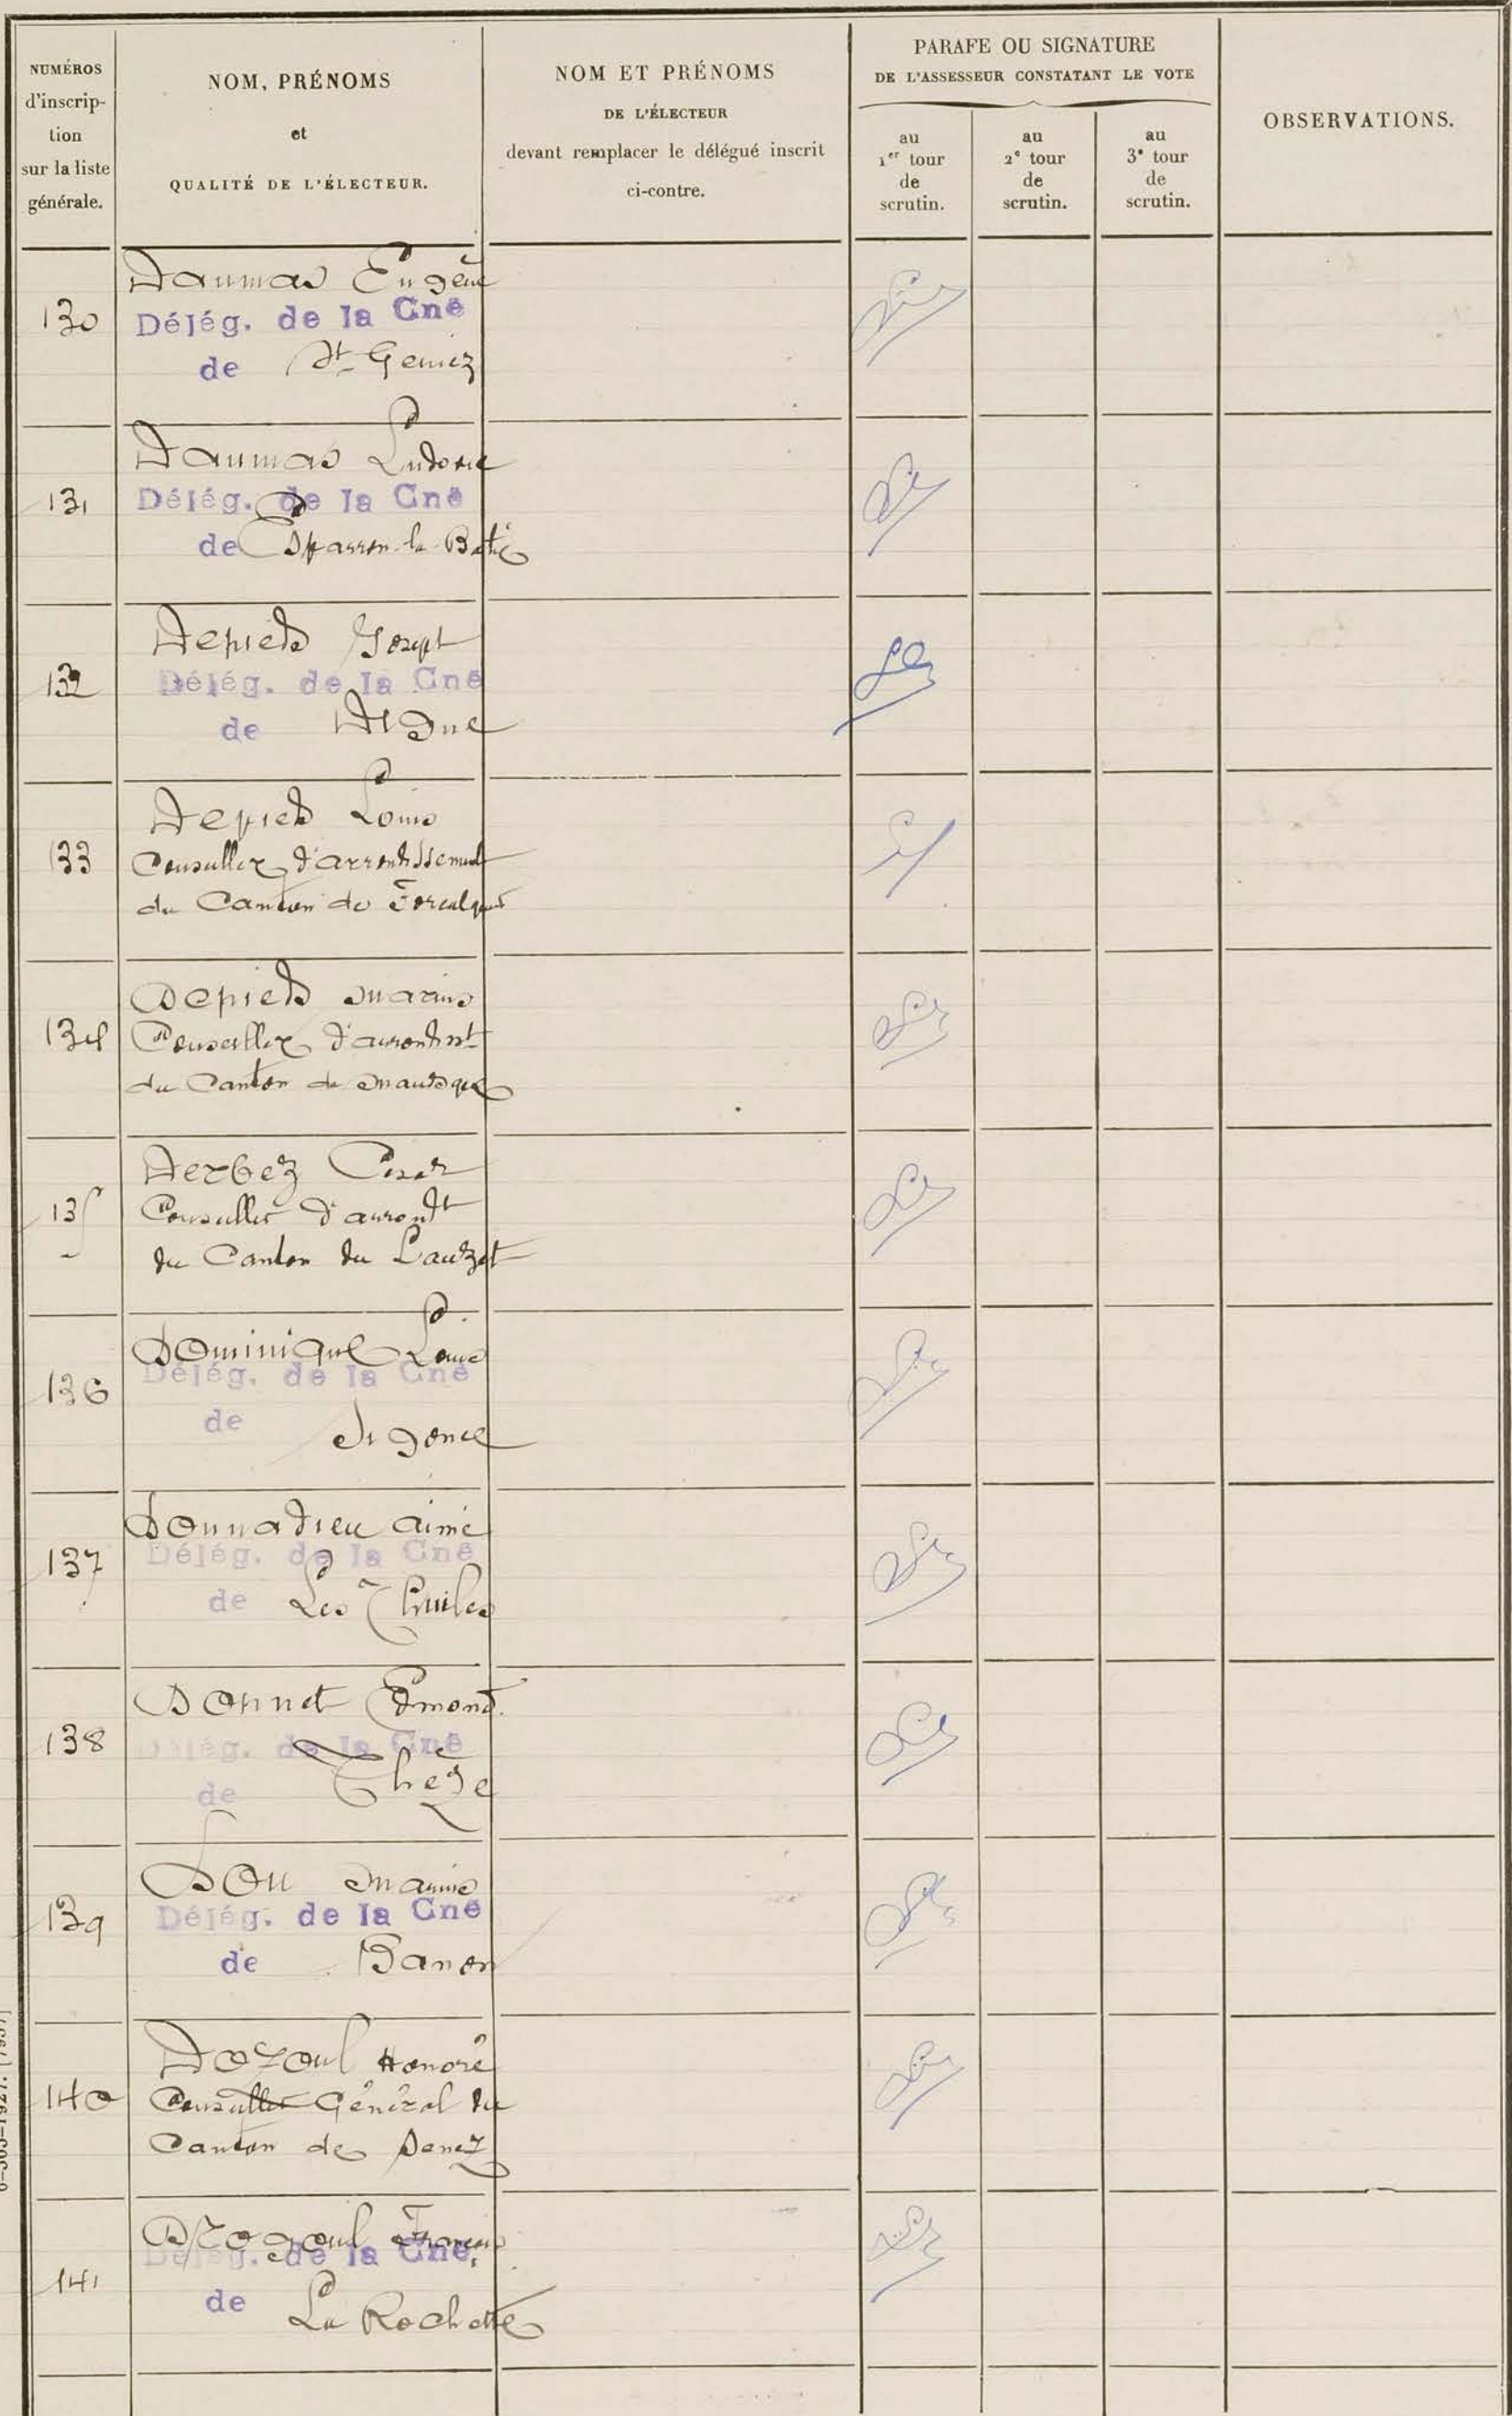 NUMÉROS
d'inscrip-
tion
sur la liste
générale.
NOM, PRÉNOMS
et
QUALITÉ DE L'ÉLECTEUR.
NOM ET PRÉNOMS
DE L'ÉLECTEUR
devant remplacer le délégué inscrit
ci-contre.
PARAFE OU SIGNATURE
DE L'ASSESSEUR CONSTATANT LE VOTE
au
1er tour
de
scrutin.
au
2e tour
de
scrutin.
au
3e tour
de
scrutin.
OBSERVATIONS.
Daumas Eugène
130 Délég. de la Cne
de St Geniez
Daumas Ludovic
131 Délég. de la Cne
de Esparron-la-Batie
Depieds Joseph
132 Délég. de la Cne
de
Depieds Louis
133 Conseiller d'arrondissement
du Canton de Forcalquier
Depieds Marius
134 Conseiller d'arrondist
du Canton de Manosque
Derbez César
135 Conseiller d'arrondt
du Canton du Lauzet
Dominique Louis
136 Délég. de la Cne
de Sigonce
Donnadieu Aimé
137 Délég. de la Cne
de Les Thuiles
Donnet Edmond
138 Délég. de la Cne
de Thèze
Dou Marius
139 Délég. de la Cne
de Banon
Dozoul Honoré
140 Conseiller Général du
Canton de Senez
Drogoul François
141 Délég. de la Cne
de La Rochette